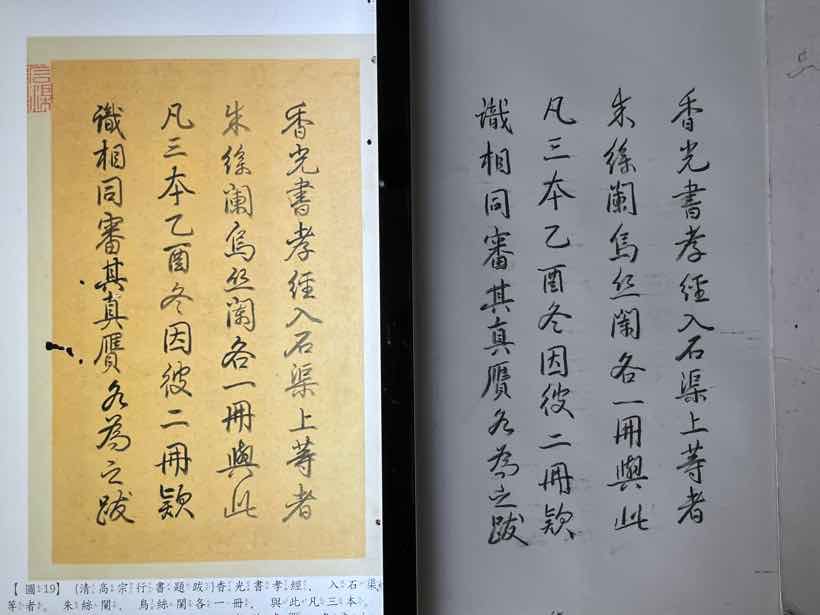 香光書孝經入石渠上等者
朱絲闌烏丝闌各一冊與此
凡三本乙酉冬因彼二冊款
識相同審其真贋各為之跋
【圖19】(清高宗行書題跋)香光書孝經，入石渠
等者。朱絲闌，烏絲闌各一冊，與此凡三本。
香光書孝經入石渠上等者
朱絲闌烏丝闌各一冊與此
凡三本乙酉冬因彼二冊款
識相同審其真贋各為之跋